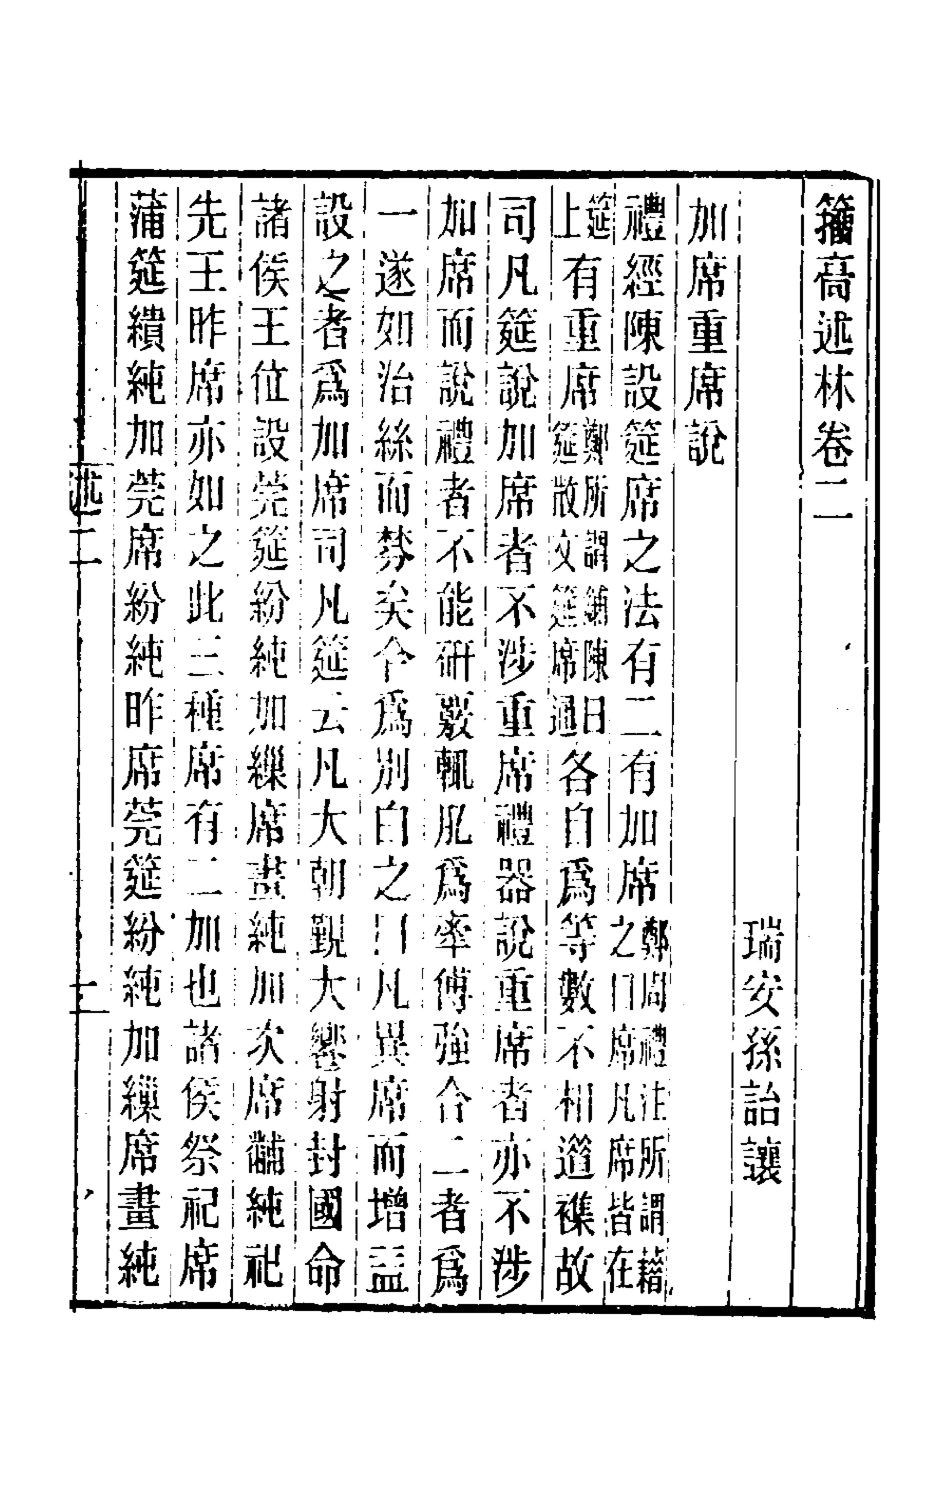 籒高述林卷二
瑞安孫詒讓
加席重席說
禮經陳設筵席之法有二有加席鄭周禮注所謂藉之曰席凡席皆在
筵上有重席鄭所謂鋪陳曰筵散文筵席通各自爲等數不相遝襍故
司凡筵說加席者不涉重席禮器說重席者亦不涉
加席而說禮者不能硏覈輒肊爲牽傅強合二者爲
一遂如治絲而棼矣今爲別白之曰凡異席而增益
設之者爲加席司凡筵云凡大朝覲大響射封國命
諸侯王位設莞筵紛純加繅席畫純加次席黼純祀
先王昨席亦如之此三種席有二加也諸侯祭祀席
蒲筵繢純加莞席紛純昨席莞筵紛純加繅席畫純
述二